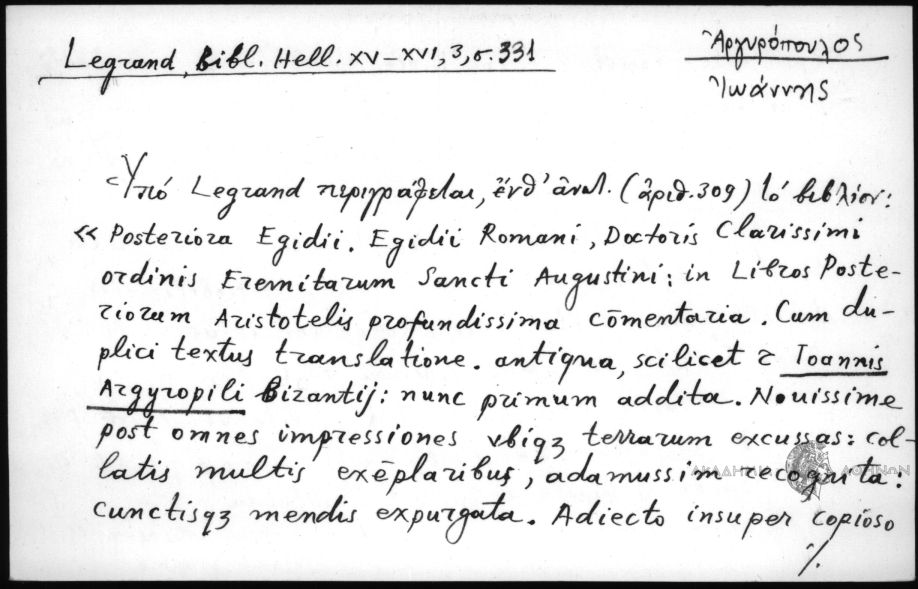 Legrand, Bibl. Hell. XV–XVI, 3, σ. 331
Ἀργυρόπουλος
Ἰωάννης
Ὑπό Legrand περιγράφεται, ἔνθ' ἀνωτ. (ἀριθ. 309) τό βιβλίον:
« Posteriora Egidii. Egidii Romani, Doctoris Clarissimi
ordinis Eremitarum Sancti Augustini: in Libros Poste-
riorum Aristotelis profundissima cōmentaria. Cum du-
plici textus translatione. antiqua, scilicet ⁊ Ioannis
Argyropili Bizantij: nunc primum addita. Nouissime
post omnes impressiones vbiqꝫ terrarum excussas: col-
latis multis exēplaribus, adamussim recognita:
cunctisqꝫ mendis expurgata. Adiecto insuper copioso
ΑΚΑΔΗΜΙΑ ΑΘΗΝΩΝ
·/.